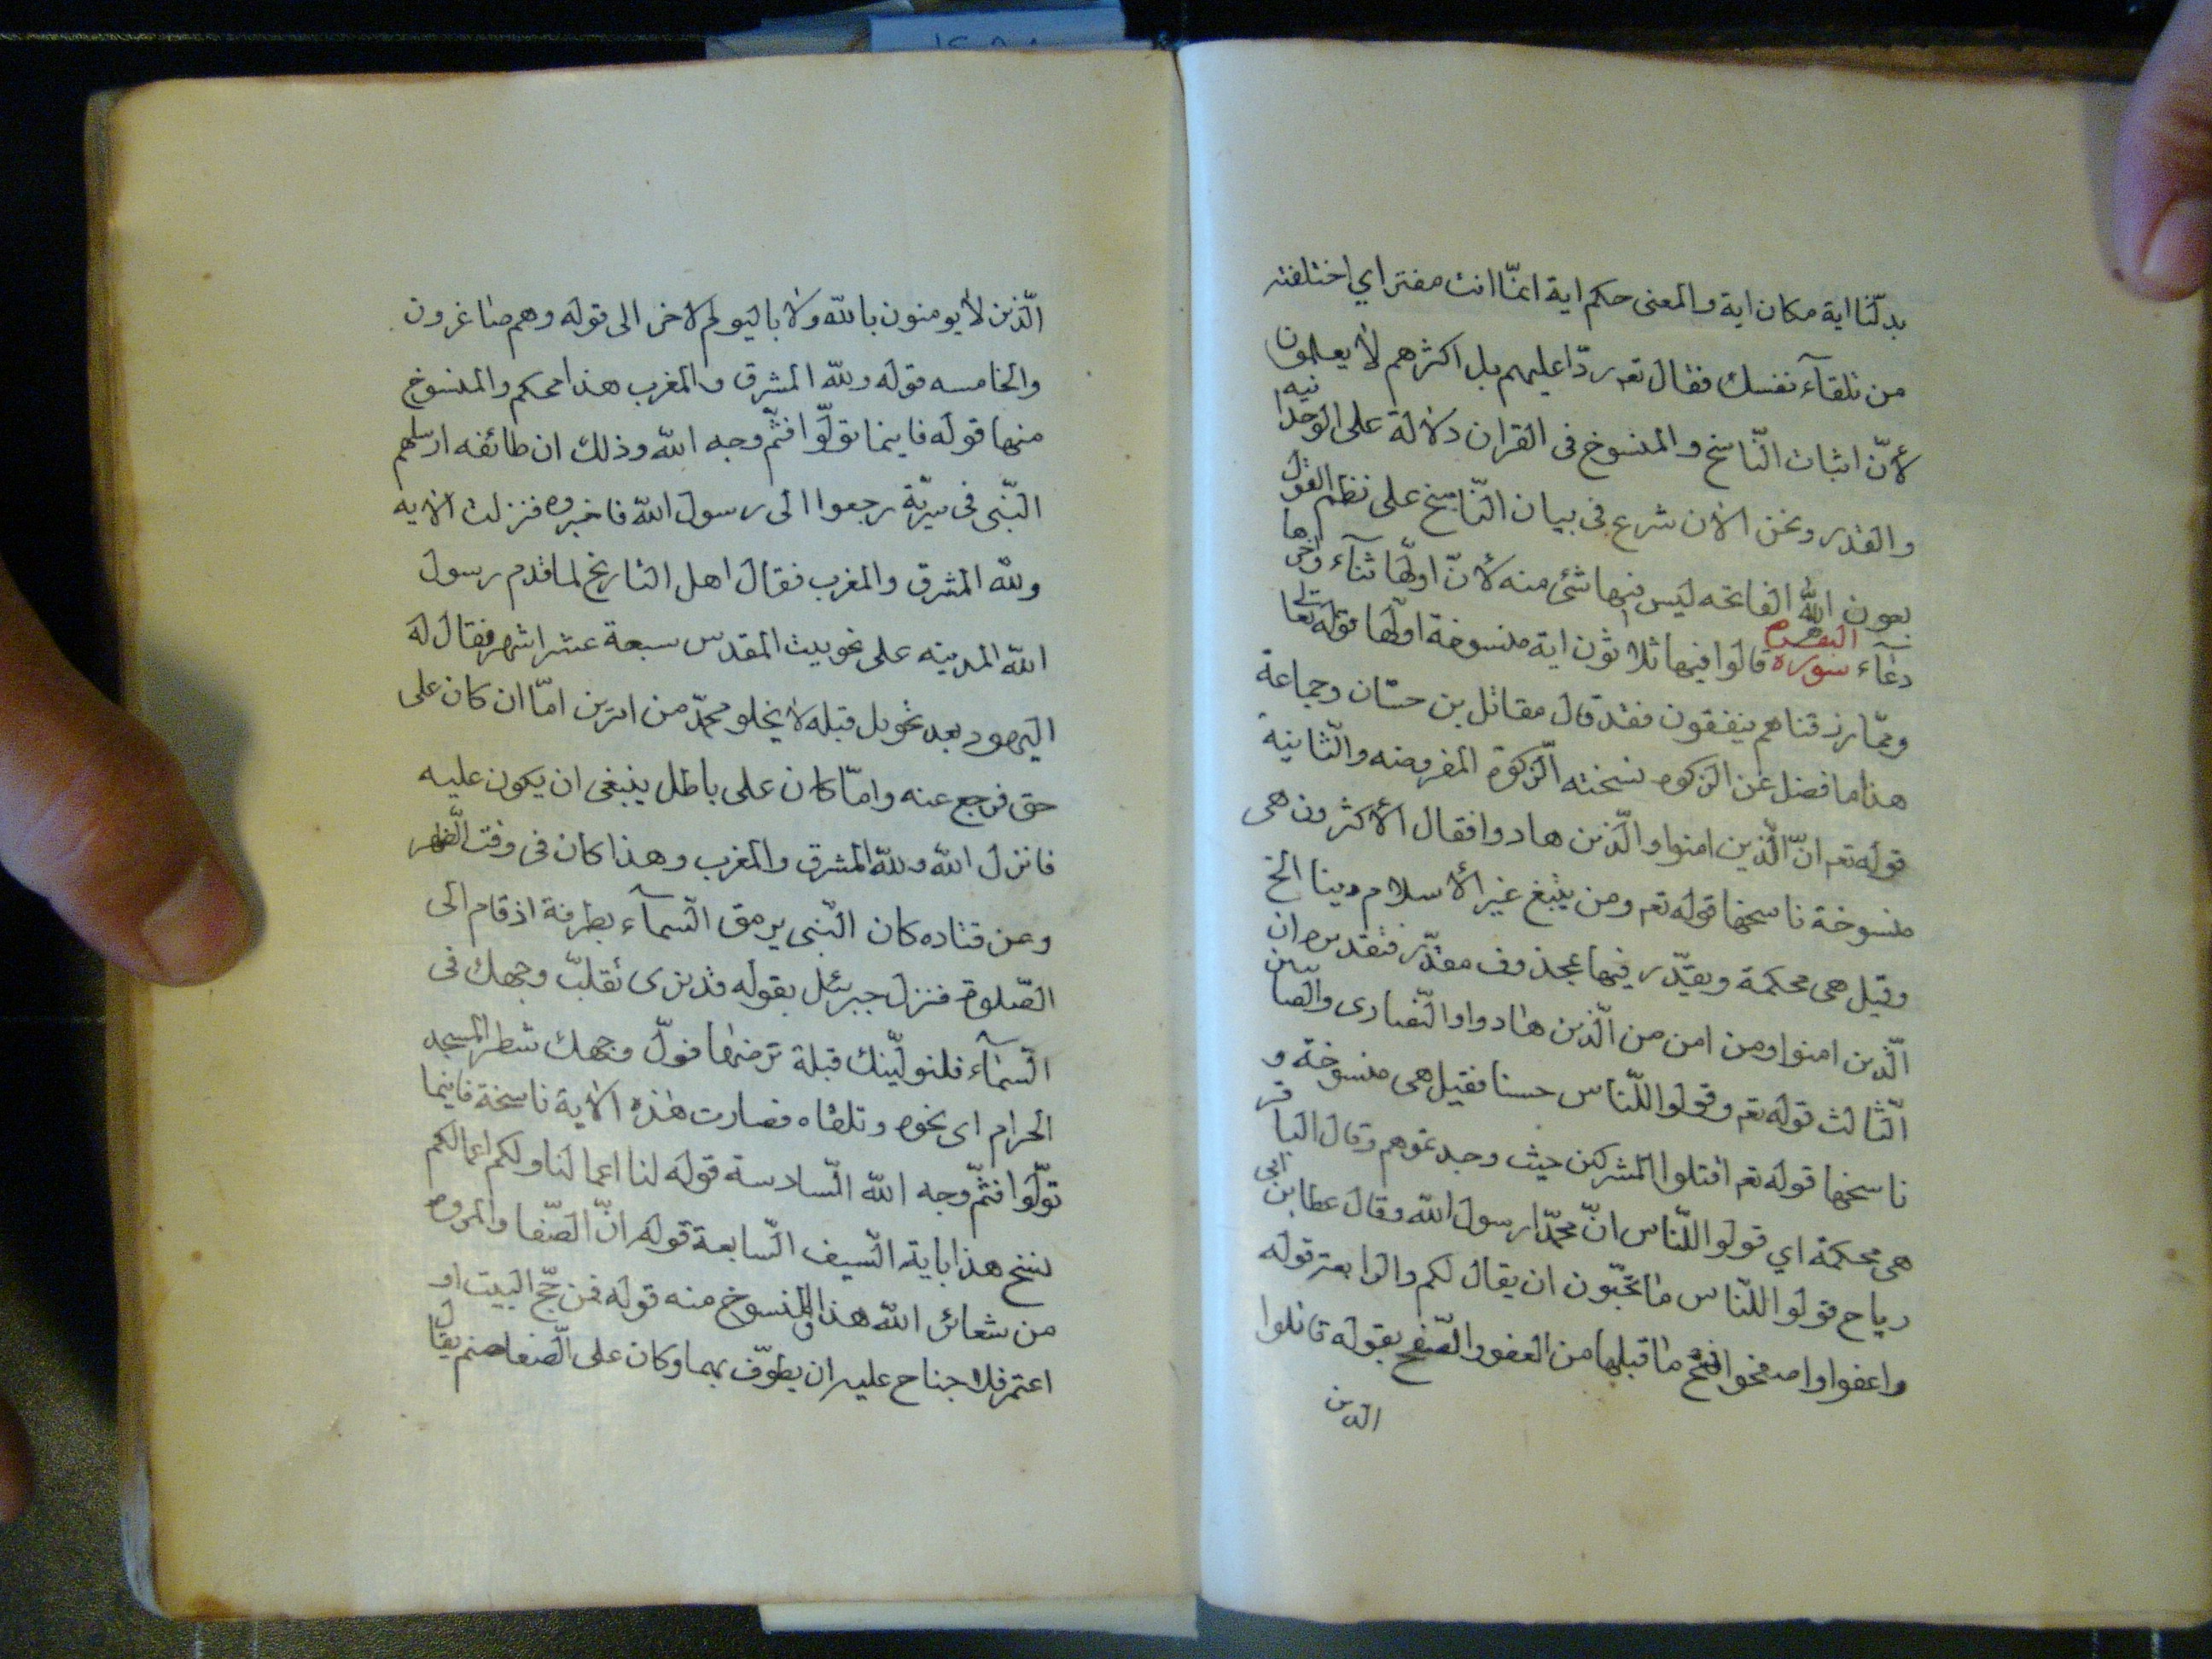 بدلّنا اية مكان اية والمعنى حكم اية انمّا انت مفتر اي اختلفته
من تلقآء نفسك فقال تعم ردّا عليهم بل اكثرهم لا يعلمون
لأنّ اثبات النّاسخ والمنسوخ فى القران دلالة على الوحدانيه
والقدر ونحن الان شرع فى بيان النّاسخ على نظم القول
بعون اللّه الفاتحه ليس فيها شئ منه لأنّ اولّها ثنآء واخرها
دعآء سورة البقره قالوا فيها ثلاثون اية منسوخة اولّها قوله تعالى
وممّا رزقناهم ينفقون فقد قال مقاتل بن حيّان وجماعة
هذا ما فضل عن الزكوه نسخته الزّكوة المفروضه والثّانية
قوله تعم انّ الّذين امنوا والّذين هادوا فقال الأكثرون هى
منسوخة ناسخها قوله تعم ومن يبتغ غير الأسلام دينا الخ
وقيل هى محكمة ويقدّر فيها محذوف مقدّر فتقديره ان
الّذين امنوا ومن امن من الّذين هادوا والنّصارى والصّابئين
الثّالث قوله تعم وقولوا للنّاس حسنا فقيل هى منسوخة و
ناسخها قوله تعم اقتلوا المشركين حيث وجدتموهم وقال الباقر
هى محكمة اي قولوا للنّاس انّ محمّدا رسول اللّه وقال عطا بن ابى
رياح قولوا للنّاس ما تحبّون ان يقال لكم والرابعة قوله
واعفوا واصفحوا نسخ ما قبلها من العفو والصّفح بقوله قاتلوا
الذين
الّذين لا يومنون باللّه ولا باليوم الاخر الى قوله وهم صاغرون
والخامسه قوله وللّه المشرق والمغرب هذا محكم والمنسوخ
منها قوله فاينما تولّوا فثمّ وجه اللّه وذلك ان طائفه ارسلهم
النّبى فى سرّية رجعوا الى رسول اللّه فاخبروه فنزلت الايه
وللّه المشرق والمغرب فقال اهل التاريخ لما قدم رسول
اللّه المدينه على نحو بيت المقدس سبعة عشر اشهر فقال له
اليهود بعد تحويل قبله لا يخلو محمّد من امرين امّا ان كان على
حق فرجع عنه وامّا كان على باطل ينبغى ان يكون عليه
فانزل اللّه وللّه المشرق والمغرب وهذا كان فى وقت الظّهر
وعن قتاده كان النّبى يرمق السّمآء بطرفة اذ قام الى
الصّلوة فنزل جبرئل بقوله قد نرى تقلّب وجهك فى
السّمآء فلنولّينّك قبلة ترضها فولّ وجهك شطر المسجد
الحرام اى نحوه وتلقاه فصارت هذه الاية ناسخة فاينما
تولّوا فثمّ وجه اللّه السّادسة قوله لنا اعمالنا ولكم اعمالكم
نسخ هذا باية السّيف السّابعة قوله انّ الصّفا والمروه
من شعائر اللّه هذا والمنسوخ منه قوله فمن حجّ البيت او
اعتمر فلا جناح عليه ان يطوّف بهما وكان على الصّفا صنم يقال